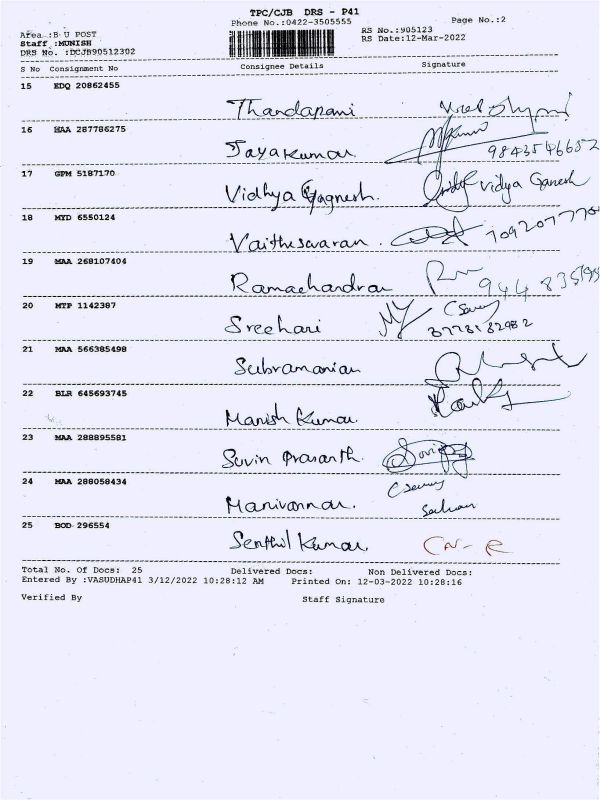 TPC/CJB DRS - P41
Phone No.:0422-3505555
Page No.:2
Area :B U POST
RS No.:905123
Staff :MUNISH
RS Date:12-Mar-2022
DRS No. :DCJB90512302
S No Consignment No Consignee Details Signature
15 EDQ 20862455
Thandapani
16 MAA 287786275
Jayakumar 9843546652
17 GPM 5187170
Vidhya Gagnesh. Vidya Ganesh
18 MYD 6550124
Vaitheswaran.
19 MAA 268107404
Ramachandran
20 MTP 1142387
Sreehari
21 MAA 566385498
Subramanian
22 BLR 645693745
Manish Kumar
23 MAA 288895581
Suvin Prasanth.
24 MAA 288058434
Manivannan.
25 BOD 296554
Senthil Kumar.
Total No. Of Docs: 25 Delivered Docs: Non Delivered Docs:
Entered By :VASUDHAP41 3/12/2022 10:28:12 AM Printed On: 12-03-2022 10:28:16
Verified By Staff Signature